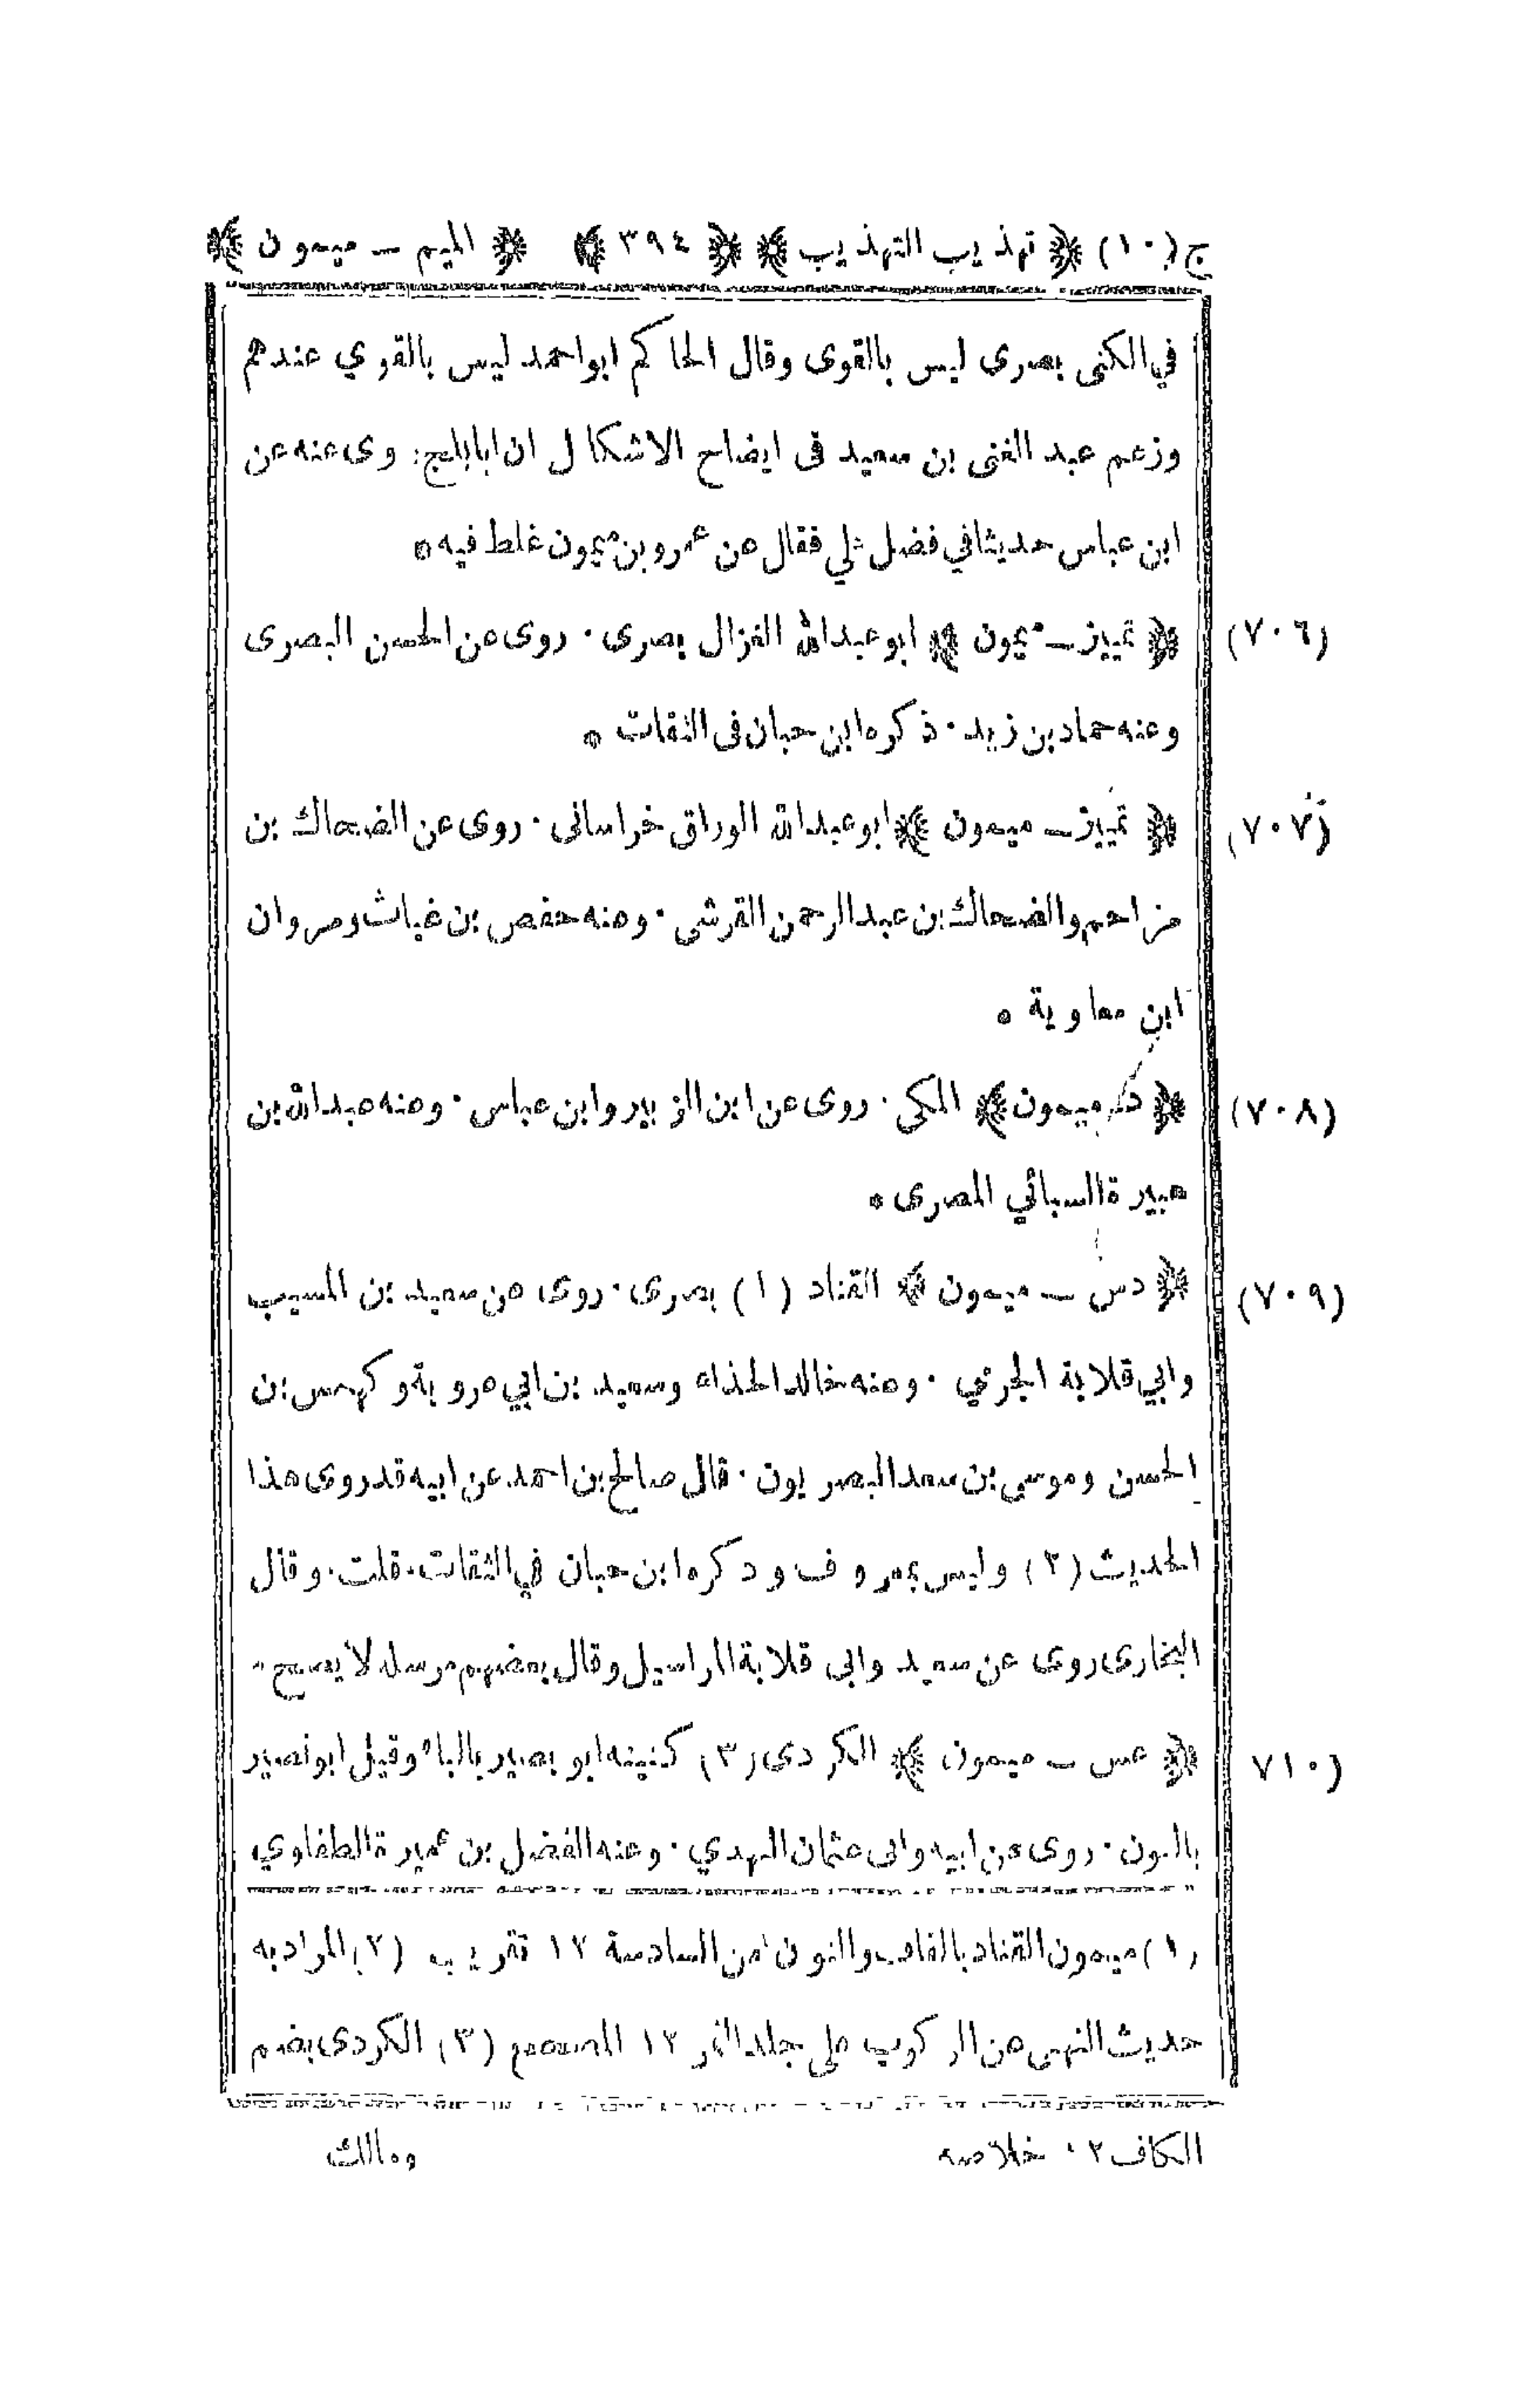 ج (١٠) ﴿ تهذيب التهذيب ﴾ ﴿ ٣٩٤ ﴾ ﴿ الميم – ميمون ﴾
في الكنى بصرى ليس بالقوى وقال الحاكم ابو احمد ليس بالقوي عندهم
وزعم عبد الغنى بن سعيد فى ايضاح الاشكال ان ابابلج روى عنه عن
ابن عباس حديثا في فضل علي فقال عن عمرو بن ميمون غلط فيه *
(٧٠٦) ﴿ تمييز – ميمون ﴾ ابو عبدالله الغزال بصرى . روى عن الحسن البصرى
وعنه حماد بن زيد . ذكره ابن حبان فى الثقات *
(٧٠٧) ﴿ تمييز – ميمون ﴾ ابو عبدالله الوراق خراسانى . روى عن الضحاك بن
مزاحم والضحاك بن عبد الرحمن القرشى . وعنه حفص بن غياث ومروان
ابن معاوية *
(٧٠٨) ﴿ د – ميمون ﴾ المكى . روى عن ابن الزبير وابن عباس . وعنه عبدالله بن
هبيرة السبائي المصرى *
(٧٠٩) ﴿ دس – ميمون ﴾ القناد (١) بصرى . روى عن سعيد بن المسيب
وابي قلابة الجرمي . وعنه خالد الحذاء وسعيد بن ابي عروبة وكهمس بن
الحسن وموسى بن سعد البصريون . قال صالح بن احمد عن ابيه قد روى هذا
الحديث (٢) وليس بمعروف وذكره ابن حبان في الثقات . قلت . وقال
البخارى روى عن سعيد وابى قلابة المراسيل وقال بعضهم مرسله لا يصح *
(٧١٠) ﴿ عس – ميمون ﴾ الكردى (٣) كنيته ابو بصير بالباء وقيل ابو نصير
بالنون . روى عن ابيه وابى عثمان النهدي . وعنه الفضل بن عميرة الطفاوي
(١) ميمون القناد بالقاف والنون من السادسة ١٢ تقريب (٢) المراد به
حديث النهى عن الركوب على جلد النمر ١٢ المصحح (٣) الكردى بضم
الكاف ١٢ خلاصه
ومالك